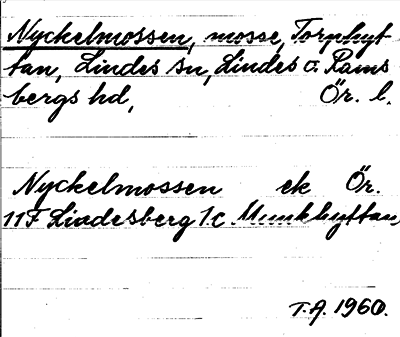 Nyckelmossen, mosse, Torphyt
tan, Lindes sn, Lindes o. Rams
bergs hd, Ör. l.
Nyckelmossen ek Ör.
11F Lindesberg 1c Munkhyttan
T.A. 1960.